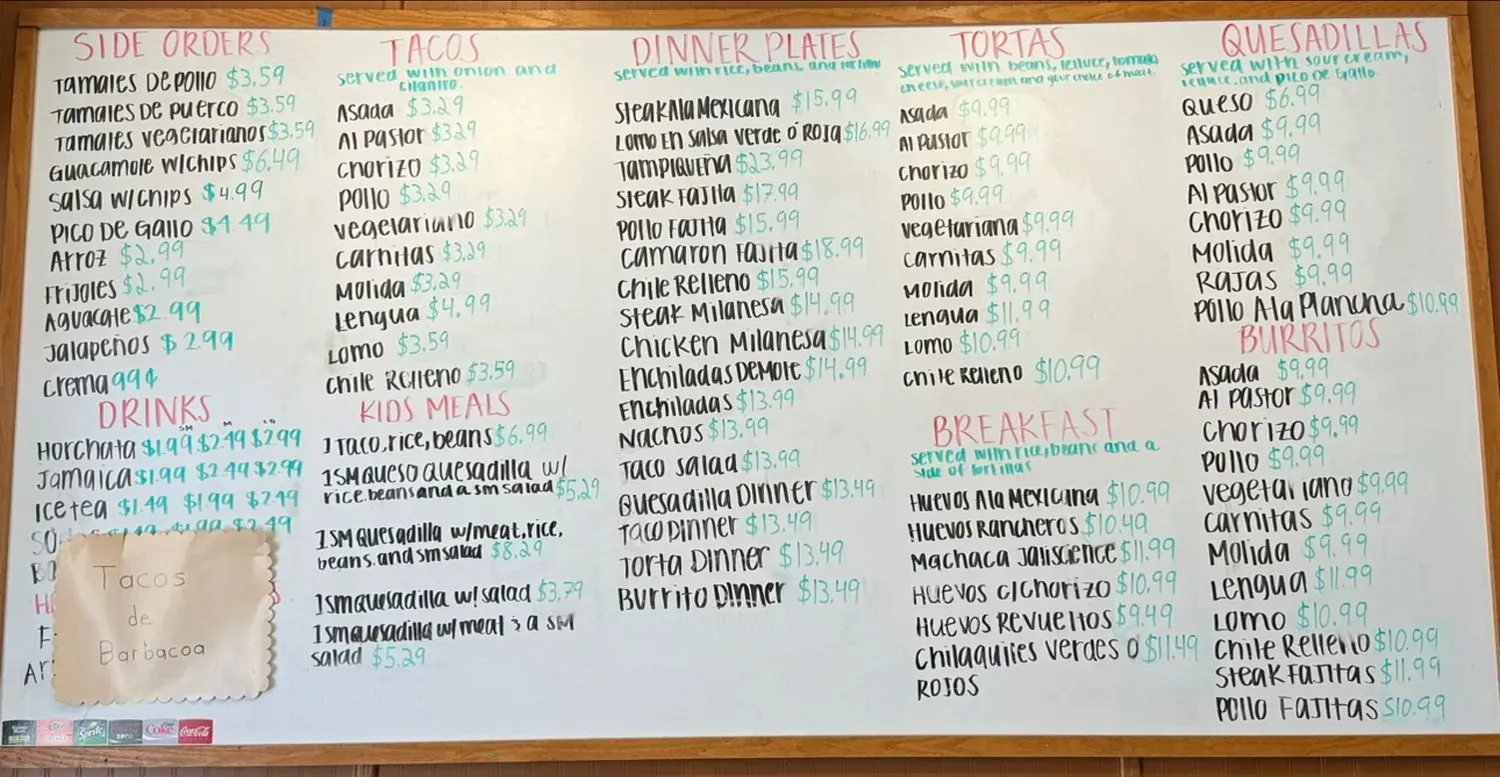 SIDE ORDERS
Tamales De Pollo $3.59
Tamales De Puerco $3.59
Tamales Vegetarianos $3.59
Guacamole W/Chips $6.49
Salsa W/Chips $4.99
Pico De Gallo $4.49
Arroz $2.99
Frijoles $2.99
Aguacate $2.99
Jalapeños $2.99
Crema 99¢
DRINKS
SM M LG
Horchata $1.99 $2.49 $2.99
Jamaica $1.99 $2.49 $2.99
Ice tea $1.49 $1.99 $2.49
$1.49 $1.99 $2.49
Tacos
de
Barbacoa
Sprite
zero
Coke
Coca-Cola
TACOS
served with onion and
cilantro.
Asada $3.29
Al Pastor $3.29
Chorizo $3.29
Pollo $3.29
Vegetariano $3.29
Carnitas $3.29
Molida $3.29
Lengua $4.99
Lomo $3.59
Chile Relleno $3.59
KIDS MEALS
1 Taco, rice, beans $6.99
1 SM queso quesadilla w/
rice, beans and a sm salad $5.29
1 SM Quesadilla w/meat, rice,
beans, and sm salad $8.29
1 sm quesadilla w/ salad $3.79
1 sm quesadilla w/ meat & a SM
salad $5.29
DINNER PLATES
served with rice, beans, and tortillas
Steak Ala Mexicana $15.99
Lomo En Salsa Verde O' Roja $16.99
Tampiqueña $23.99
Steak Fajita $17.99
Pollo Fajita $15.99
Camaron Fajita $18.99
Chile Relleno $15.99
Steak Milanesa $14.99
Chicken Milanesa $14.99
Enchiladas De Mole $14.99
Enchiladas $13.99
Nachos $13.99
Taco Salad $13.99
Quesadilla Dinner $13.49
Taco Dinner $13.49
Torta Dinner $13.49
Burrito Dinner $13.49
TORTAS
served with beans, lettuce, tomato
cheese, sour cream and your choice of meat.
Asada $9.99
Al Pastor $9.99
Chorizo $9.99
Pollo $9.99
Vegetariana $9.99
Carnitas $9.99
Molida $9.99
Lengua $11.99
Lomo $10.99
Chile Relleno $10.99
BREAKFAST
served with rice, beans and a
side of tortillas
Huevos Ala Mexicana $10.99
Huevos Rancheros $10.49
Machaca Jaliscience $11.99
Huevos c/Chorizo $10.99
Huevos Revueltos $9.49
Chilaquiles Verdes O $11.49
Rojos
QUESADILLAS
served with sour cream,
lettuce, and pico De Gallo.
Queso $6.99
Asada $9.99
Pollo $9.99
Al Pastor $9.99
Chorizo $9.99
Molida $9.99
Rajas $9.99
Pollo Ala Plancha $10.99
BURRITOS
Asada $9.99
Al Pastor $9.99
Chorizo $9.99
Pollo $9.99
Vegetariano $9.99
Carnitas $9.99
Molida $9.99
Lengua $11.99
Lomo $10.99
Chile Relleno $10.99
Steak Fajitas $11.99
Pollo Fajitas $10.99